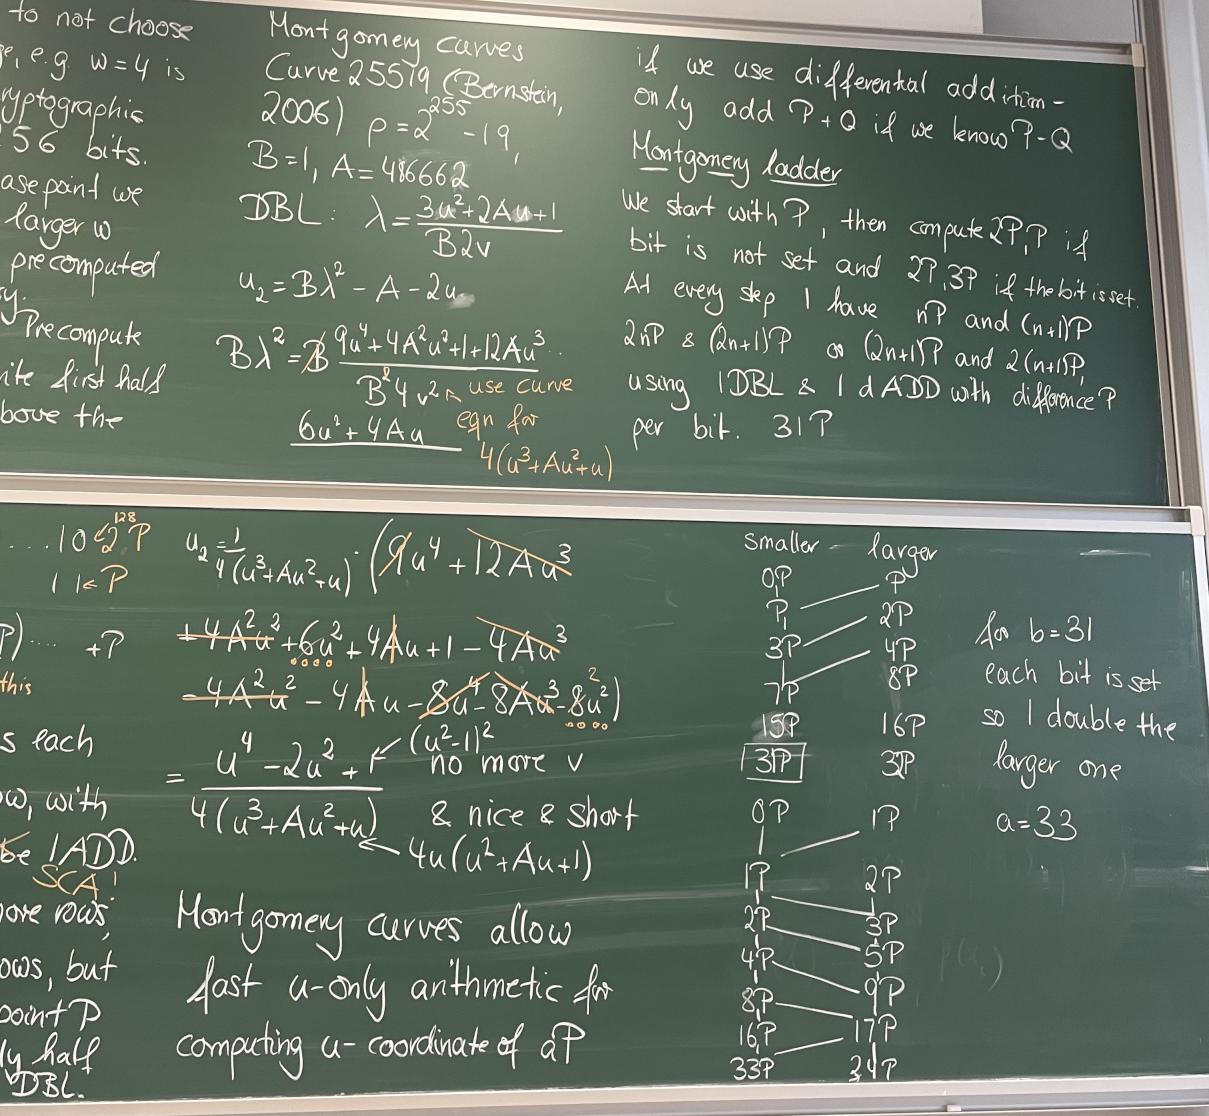 to not choose
e.g w=4 is
ryptographic
56 bits.
ase point we
larger w
precomputed
y.
Precompute
ite first half
bove the
Montgomery curves
Curve 25519 (Bernstein,
2006) p = 2^255 - 19,
B=1, A = 486662
DBL: λ = (3u²+2Au+1)/(B2v)
u₂ = Bλ² - A - 2u
Bλ² = B (9u⁴+4A²u²+1+12Au³ ..
B²4v² ↖ use curve
6u²+4Au eqn for
4(u³+Au²+u)
if we use differential addition -
only add P+Q if we know P-Q
Montgomery ladder
We start with P, then compute 2P, P if
bit is not set and 2P, 3P if the bit is set.
At every step I have nP and (n+1)P
2nP & (2n+1)P or (2n+1)P and 2(n+1)P,
using 1DBL & 1 dADD with difference P
per bit. 31P
...10 ← 2^128 P
11 ← P
P)... +P
this
s each
ow, with
be 1ADD.
SCA!
more rows,
ows, but
point P
ly half
DBL.
u₂ = 1/4(u³+Au²+u) · (9u⁴ + 12Au³
+4A²u² + 6u² + 4Au + 1 - 4Au³
-4A²u² - 4Au - 8u⁴ - 8Au³ - 8u²)
= u⁴ - 2u² + 1 ↙ (u²-1)²
no more v
4(u³+Au²+u) & nice & short
← 4u(u²+Au+1)
Montgomery curves allow
fast u-only arithmetic for
computing u-coordinate of aP
smaller - larger
0P P
P 2P
3P 4P
7P 8P
15P 16P
31P 32P
for b=31
each bit is set
so I double the
larger one
0P 1P
a=33
1P 2P
2P 3P
4P 5P
8P 9P
16P 17P
33P 34P